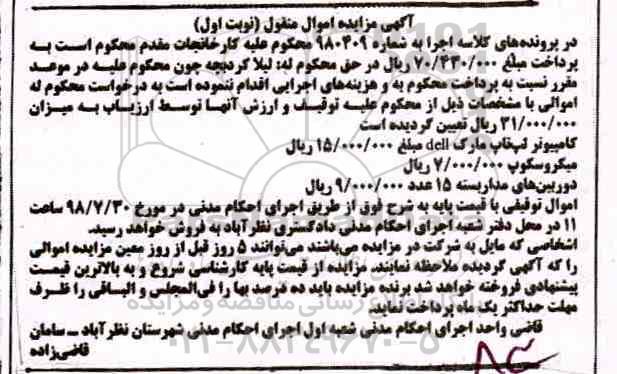 آگهی مزایده اموال منقول (نوبت اول)
در پرونده‌های کلاسه اجرا به شماره ۹۸۰۴۰۹ محکوم علیه کارخانجات مقدم محکوم است به
پرداخت مبلغ ۷۰/۴۳۰/۰۰۰ ریال در حق محکوم له: لیلا کردبچه چون محکوم علیه در موعد
مقرر نسبت به پرداخت محکوم به و هزینه‌های اجرایی اقدام ننموده است به درخواست محکوم له
اموالی با مشخصات ذیل از محکوم علیه توقیف و ارزش آنها توسط ارزیاب به میزان
۳۱/۰۰۰/۰۰۰ ریال تعیین گردیده است
کامپیوتر لپ‌تاپ مارک dell مبلغ ۱۵/۰۰۰/۰۰۰ ریال
میکروسکوپ ۷/۰۰۰/۰۰۰ ریال
دوربین‌های مداربسته ۱۵ عدد ۹/۰۰۰/۰۰۰ ریال
اموال توقیفی با قیمت پایه به شرح فوق از طریق اجرای احکام مدنی در مورخ ۹۸/۷/۳۰ ساعت
۱۱ در محل دفتر شعبه اجرای احکام مدنی دادگستری نظرآباد به فروش خواهد رسید.
اشخاصی که مایل به شرکت در مزایده می‌باشند می‌توانند ۵ روز قبل از روز معین مزایده اموالی
را که آگهی گردیده ملاحظه نمایند. مزایده از قیمت پایه کارشناسی شروع و به بالاترین قیمت
پیشنهادی فروخته خواهد شد برنده مزایده باید ده درصد بها را فی‌المجلس و الباقی را ظرف
مهلت حداکثر یک ماه پرداخت نماید.
قاضی واحد اجرای احکام مدنی شعبه اول اجرای احکام مدنی شهرستان نظرآباد ــ سامان
قاضی‌زاده
۰۲۱-۸۸۳۴۹۶۷۰-۵